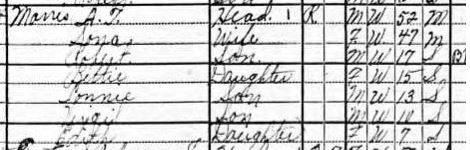 Morris A. F. Head 1 R M W 52 M
Wife F W 47 M
Robert Son M W 17 S
Bettie Daughter F W 15 S
Lonnie Son M W 13 S
Virgil Son M W 10 S
Edith Daughter F W 7 S